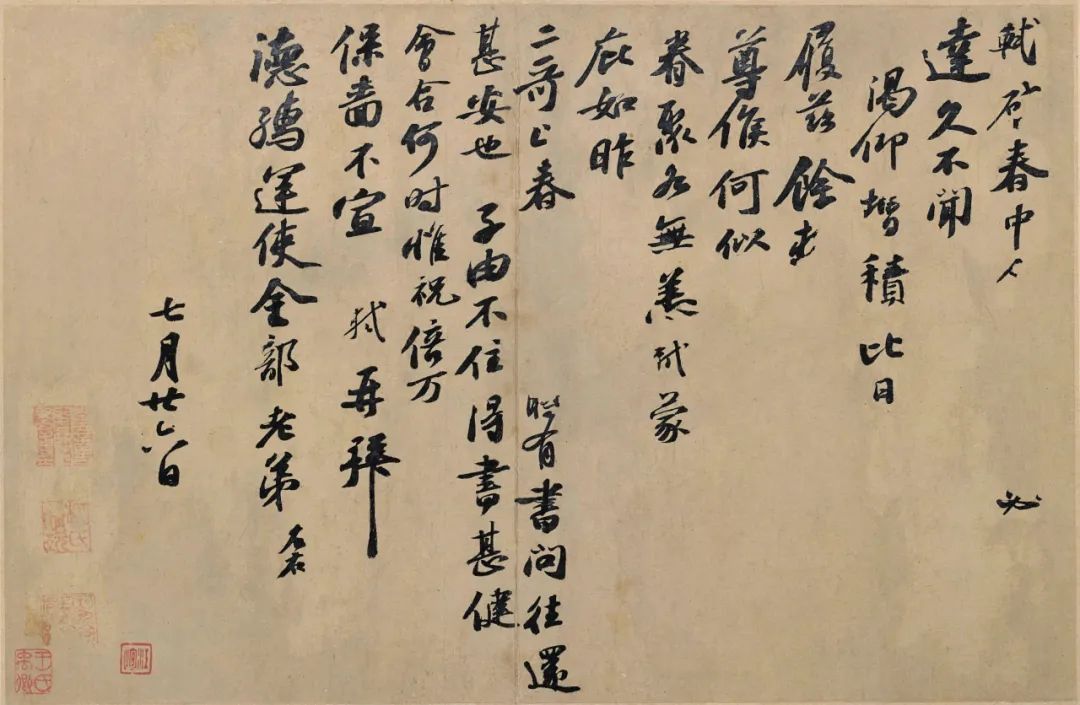 軾啓春中人 必
達久不聞
渴仰增積比日
履茲餘
尊候何似
眷聚各無恙軾蒙
庇如昨
二哥上春 時有書問往還
甚安也 子由不住得書甚健
會合何时惟祝倍万
保嗇不宣 軾再拜
德孺運使金部老弟
七月廿六日